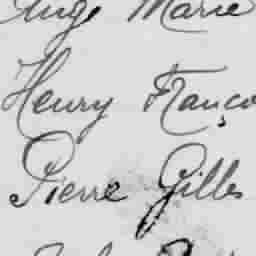 Ange Marie
Henry Franço
Pierre Gilles